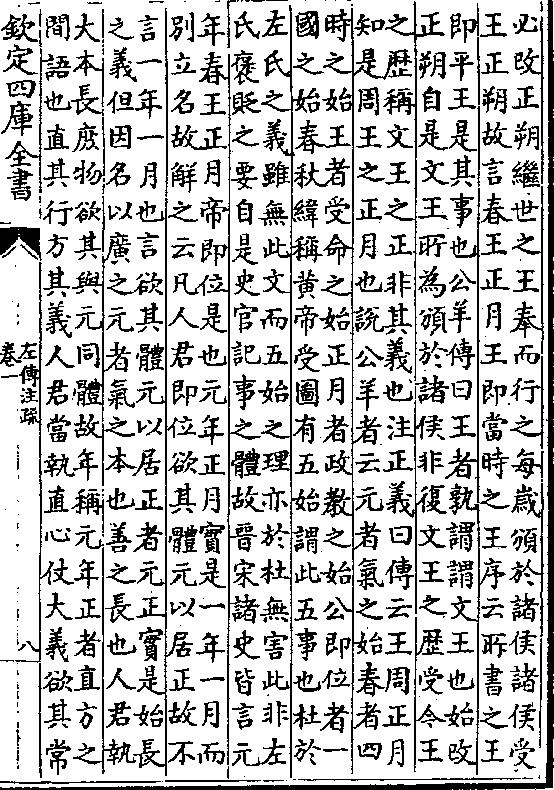 必改正朔繼世之王奉而行之每歲頒於諸侯諸侯受
王正朔故言春王正月王即當時之王序云所書之王
即平王是其事也公羊傳曰王者孰謂謂文王也始改
正朔自是文王所為頒於諸侯非復文王之歴受今王
之歴稱文王之正非其義也注正義曰傳云王周正月
知是周王之正月也說公羊者云元者氣之始春者四
時之始王者受命之始正月者政教之始公即位者一
國之始春秋緯稱黄帝受圖有五始謂此五事也杜於
左氏之義雖無此文而五始之理亦於杜無害此非左
氏褒貶之要自是史官記事之體故晉宋諸史皆言元
年春王正月帝即位是也元年正月實是一年一月而
別立名故解之云凡人君即位欲其體元以居正故不
言一年一月也言欲其體元以居正者元正實是始長
之義但因名以廣之元者氣之本也善之長也人君執
大本長庶物欲其與元同體故年稱元年正者直方之
間語也直其行方其義人君當執直心仗大義欲其常
欽定四庫全書
左傳注疏
卷一
八